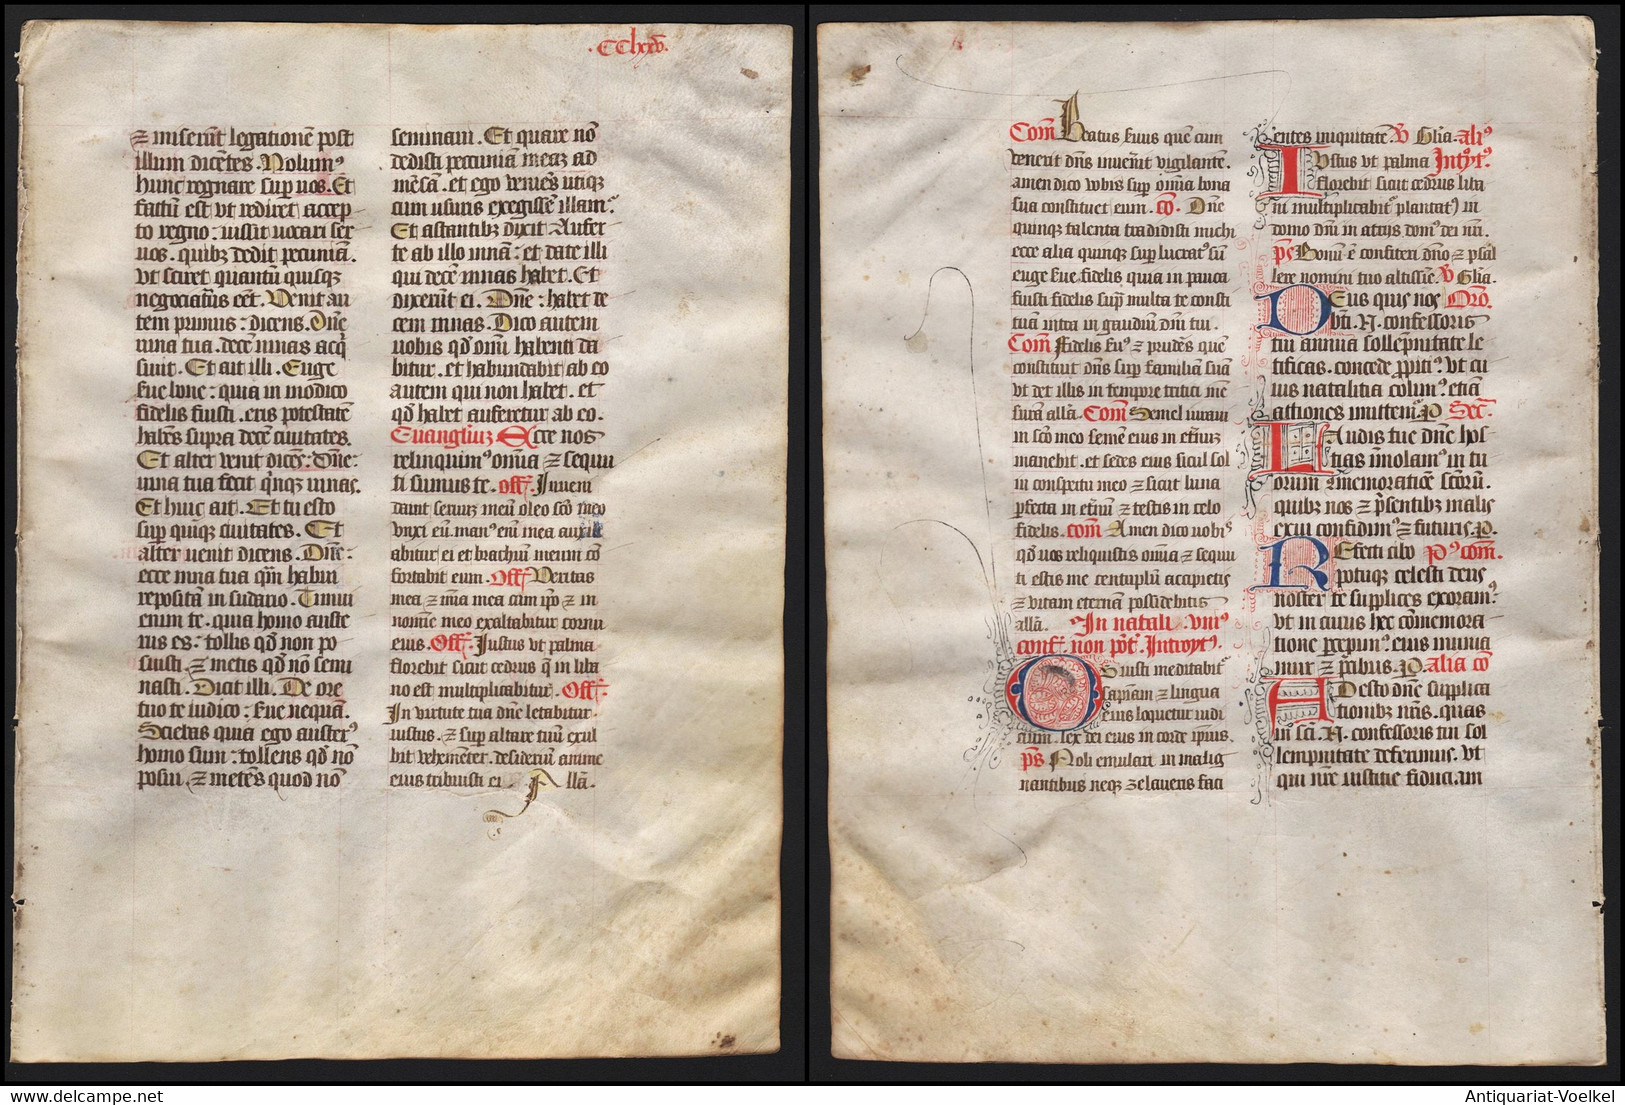 .CClxxv.
⁊ miserūt legationē post
illum dicētes. Nolum᷒
hunc regnare sup nos. Et
factū est vt rediret accep
to regno: iussit uocari ser
uos. quibꝫ dedit pecuniā.
vt sciret quantū quisqꝫ
negociatus eēt. Venit au
tem primus: dicens. Dn̄e
mna tua. decē mnas acq̄
siuit. Et ait illi. Euge
serue bone: quia in modico
fidelis fuisti. eris potestatē
habēs supra decē ciuitates.
Et alter venit dicēs: Dn̄e:
mna tua fecit q̄nqꝫ mnas.
Et huic ait. Et tu esto
sup quīqꝫ ciuitates. Et
alter uenit dicens. Dn̄e:
ecce mna tua quā habui
repositā in sudario. Timui
enim te. quia homo auste
rus es: tollis qd̄ non po
suisti. ⁊ metis qd̄ nō semi
nasti. Dicit illi. De ore
tuo te iudico: serue nequā.
Sciebas quia ego auster᷒
homo sum: tollens qd̄ nō
posui. ⁊ metēs quod nō
seminaui. Et quare nō
dedisti pecuniā meaꝫ ad
mēsā. et ego veniēs utiqꝫ
cum usuris exegissē illam.
Et astantibꝫ dixit Aufer
te ab illo mnā: et date illi
qui decē mnas habet. Et
dixerunt ei. Dn̄e: habet de
cem mnas. Dico autem
uobis qd̄ omī habenti da
bitur. et habundabit ab eo
autem qui non habet. et
qd̄ habet auferetur ab eo.
Euangliuꝫ Ecce nos
relinquim᷒ om̄ia ⁊ sequu
ti sumus te. Off. Inueni
dauit seruuꝫ meū oleo scō meo
vnxi eū. man᷒ em̄ mea auxili
abitur ei et brachiū meum cō
fortabit eum. Off. Veritas
mea ⁊ mīa mea cum ipō ⁊ in
nomīe meo exaltabitur cornu
eius. Off. Justus vt palma
florebit sicut cedrus q̄ in liba
no est multiplicabitur. Off.
In virtute tua dn̄e letabitur
iustus. ⁊ sup altare tuū exul
bit vehemēter. desideriū anime
eius tribuisti ei. Allā.
Com̄ Beatus suus quē cum
venerit dn̄s inuen̄it vigilantē.
amen dico vobis sup om̄ia bona
sua constituet eum. cō. Dn̄e
quinqꝫ talenta tradidisti michi
ecce alia quinqꝫ sup lucrat᷒ sū
euge sue fidelis quia in pauca
fuisti fidelis sup multa te consti
tuā intra in gaudiū dn̄i tui.
Com̄ Fidelis su᷒ ⁊ prudēs quē
constituit dn̄s sup familiam suā
vt det illis in tempore tritici mē
surā allā. Com̄ Semel iuraui
in scō meo semē eius in etn̄uꝫ
manebit. et sedes eius sicut sol
in conspectu meo ⁊ sicut luna
pfecta in etn̄ū ⁊ testis in celo
fidelis. com̄. Amen dico uobis
qd̄ uos reliquistis om̄ia ⁊ sequu
ti estis me centuplū accipietis
⁊ vitam eternā possidebitis
allā. In natali vni᷒
conf. non pōt. Introyt᷒.
Os iusti meditabit᷒
sapiam ⁊ lingua
eius loquetur iudi
cium. lex dei eius in corde ipius.
ps Noli emulari in malig
nantibus neqꝫ zelaueris faci
entes iniquitatē ℣ Gl̄ia. ali᷒
Iustus vt palma Int᷒yt᷒.
florebit sicut cedrus liba
ni multiplicabit᷒ plantat᷒ in
domo dn̄i in atrijs dom᷒ dei nr̄i.
ps Bonū ē confiteri dn̄o ⁊ psal
lere nomini tuo altissime ℣ Gl̄ia
Deus qui nos Orō.
bt̄i. N. confessoris
tui annua sollēpnitate le
tificas. concede ppiti᷒. vt cu
ius natalitia colim᷒ etiā
actiones imitem᷒. P Sec̄.
Laudis tue dn̄e hos
tias īmolam᷒ in tu
orum 9memoratiōe sctorū.
quibꝫ nos ⁊ p̄sentibꝫ malis
exui confidim᷒ ⁊ futuris. P.
Refecti cibo P᷒ com̄.
potuqꝫ celesti deus
noster te supplices exoram᷒.
vt in cuius hec cōmemora
tione pcepim᷒. eius munia
mur ⁊ pcibus. P. alia cō
Adesto dn̄e supplica
tionibꝫ nr̄is. quas
in sc̄i. N. confessoris tui sol
lempnitate deferimus. vt
qui nr̄e iustitie fiduciam
Antiquariat-Voelkel